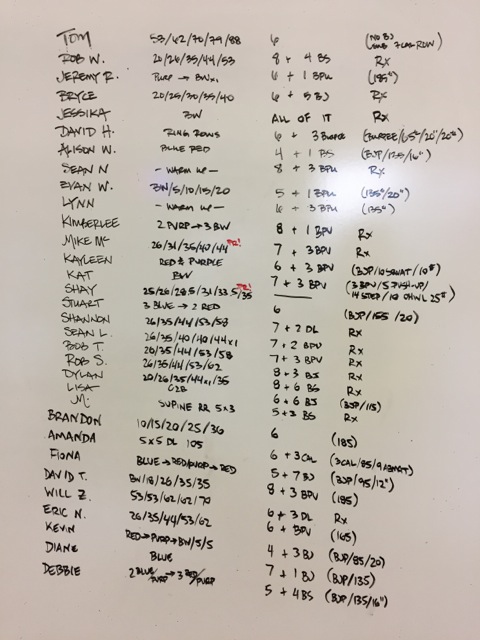 TOM 53/62/70/79/88 6 (NO BJ
ROB W. 20/26/35/44/53 8 + 4 BS Rx
JEREMY R. PURP → BWx1 6 + 1 BPU (185#)
BRYCE 20/25/30/35/40 6 + 5 BJ Rx
JESSIKA BW ALL OF IT Rx
DAVID H. RING ROWS 6 + 3
ALISON W. BLUE RED 4 + 1 BS (BJP/135/16")
SEAN N - WARM UP - 8 + 3 BPU Rx
EVAN W. BW/5/10/15/20 5 + 1 BPU (135#/20")
LYNN - WARM UP - 6 + 3 BPU (135#)
KIMBERLEE 2 PURP → 3 BW 8 + 1 BPU Rx
MIKE Mc 26/31/35/40/44 PR! 7 + 3 BPU Rx
KAYLEEN RED & PURPLE 6 + 3 BPU (BJP/10 SQUAT/10#)
KAT BW 7 + 3 BPU (3 BPU/5 PUSH-UP/
SHAY 25/26/28.5/31/33.5/35 PR! 14 STEP/10 OHWL 25#)
STUART 3 BLUE → 2 RED 6 (BJP/155/20)
SHANNON 26/35/44/53/58 7 + 2 DL Rx
SEAN L. 26/35/40/40/44x1 7 + 2 BPU Rx
BOB T. 20/35/44/53/58 7 + 3 BPU Rx
ROB S. 26/35/44/53/62 8 + 3 BJ Rx
DYLAN 20/26/35/44x1/35 8 + 6 BS Rx
LISA C2B 6 + 6 BJ (BJP/115)
JM. SUPINE RR 5x3 5 + 3 BS Rx
BRANDON 10/15/20/25/36 6 (185)
AMANDA 5x5 DL 105 6 + 3 CAL (3CAL/85/9 ABMAT)
FIONA BLUE → RED/PURP → RED 5 + 7 BJ (BJP/95/12")
DAVID T. BW/18/26/35/35 8 + 3 BPU (185)
WILL Z. 53/53/62/62/70 6 + 3 DL Rx
ERIC N. 26/35/44/53/62 6 + BPU (165)
KEVIN RED → PURP → BW/5/5 4 + 3 BJ (BJP/85/20)
DIANE BLUE 7 + 1 BJ (BJP/135)
DEBBIE 2 BLUE/PURP → 3 RED/PURP 5 + 4 BS (BJP/135/16")